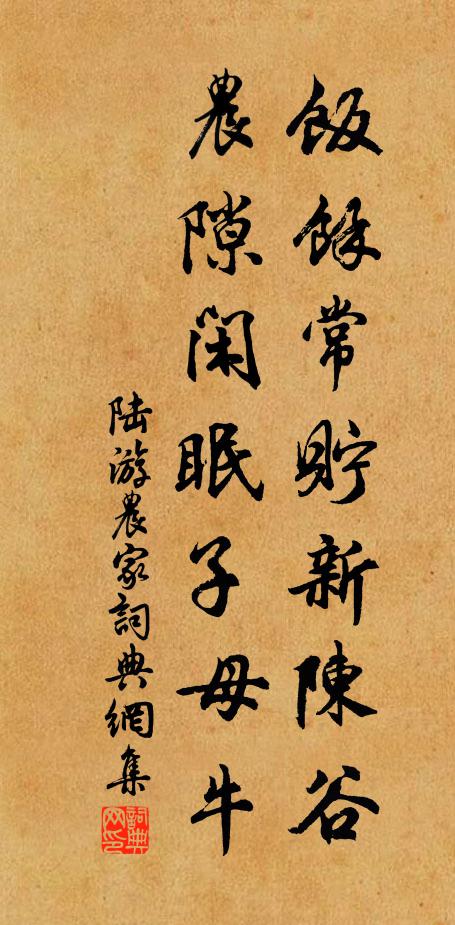 飯餘常貯新陳谷
農隙閑眠子母牛
陸游農家詞典網集
詞典网印